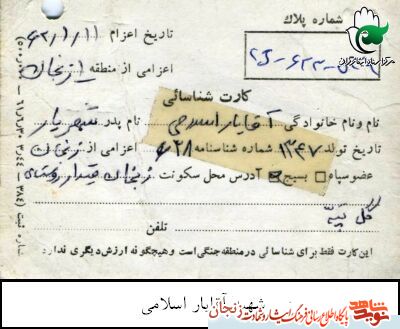 شماره پلاک
تاریخ اعزام ۶۲/۱/۱۱
اعزامی از منطقه ۱ زنجان
کارت شناسائی
نام و نام خانوادگی آقایار اسلامی نام پدر شهریار
تاریخ تولد ۱۳۴۷ شماره شناسنامه ۶۲۸ اعزامی از زنجان
عضو سپاه بسیج آدرس محل سکونت زنجان قیدار روستای
گل تپه
تلفن
این کارت فقط برای شناسائی در منطقه جنگی است و هیچگونه ارزش دیگری ندارد
شهید آقایار اسلامی
نوید شاهد
پایگاه اطلاع رسانی فرهنگ ایثار و شهادت زنجان